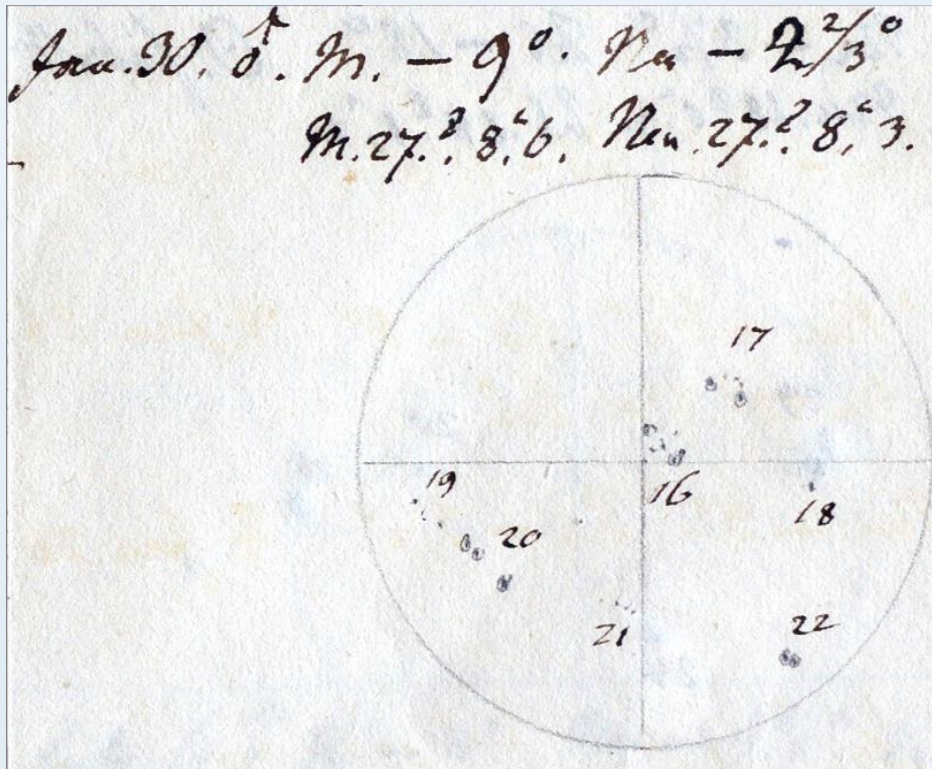 Jan. 30. ♂. M. – 9°. Nm – 2 2/3°
M. 27.″ 8.‴ 6. Nm. 27.″ 8.‴ 3.
17
16
19
18
20
21
22